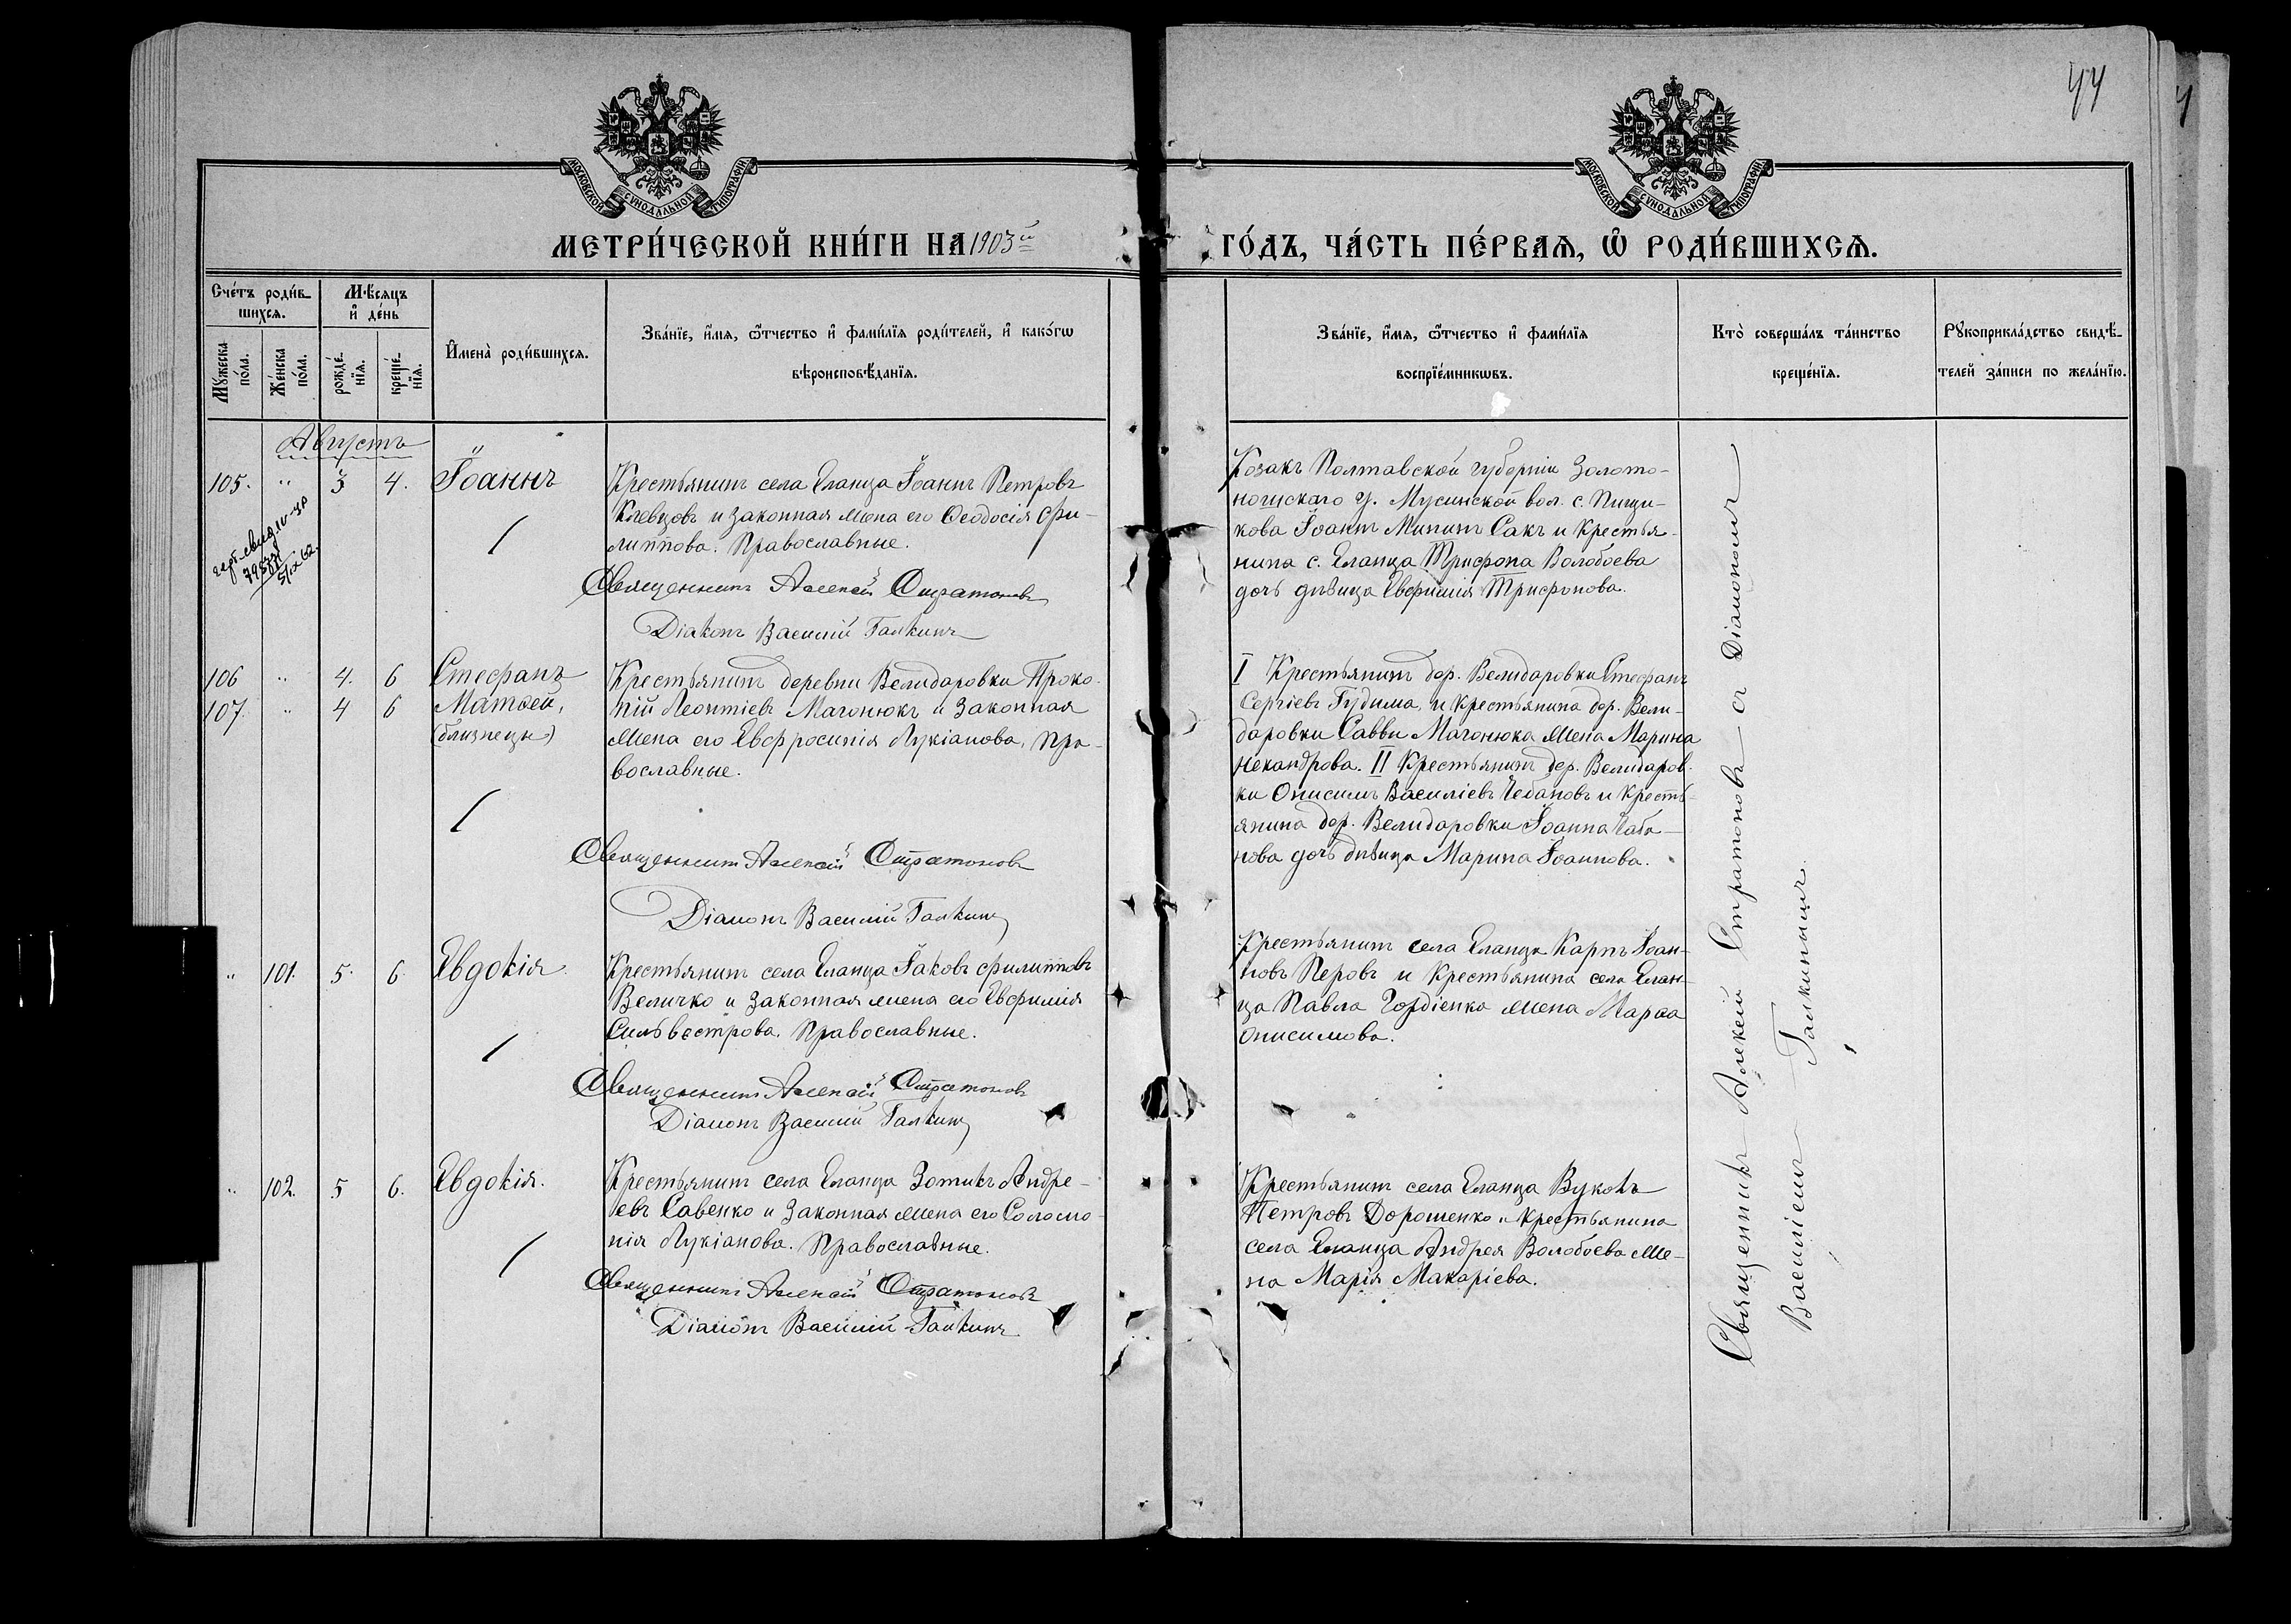 44
МОСКОВСКОЙ СѴНОДАЛЬНОЙ ТИПОГРАФІИ
МОСКОВСКОЙ СѴНОДАЛЬНОЙ ТИПОГРАФІИ
МЕТРИ́ЧЕСКОЙ КНИ́ГИ НА 1903й
ГО́ДЪ, ЧА́СТЬ ПЕ́РВАЯ, Ѡ҆ РОДИ́ВШИХСЯ.
Сче́тъ роди́в-
шихся.
Мѣ́сяцъ
и҆ де́нь
Мꙋ́жеска
по́ла.
Же́нска
по́ла.
рожде́-
нїя.
креще́-
нїя.
И҆мена̀ роди́вшихся.
Зва́нїе, и҆́мя, ѻ҆́тчество и҆ фами́лїя роди́телей, и҆ како́гѡ
вѣроисповѣ́данїя.
Зва́нїе, и҆́мя, ѻ҆́тчество и҆ фами́лїя
воспрїе́мникѡвъ.
Кто̀ соверша́лъ та́инство
креще́нїя.
Рꙋкоприкла́дство свидѣ́-
телей за́писи по жела́нїю.
Августъ
105. " 3 4. Іоаннъ
Крестьянинъ села Еланца Іоаннъ Петровъ
Клевцовъ и законная жена его Ѳеодосія Фи-
липпова. Православные.
Священникъ Алексей Стратоновъ
Діаконъ Василій Галкинъ
Козакъ Полтавской губерніи Золото-
ношскаго у. вол. с.
кова Іоаннъ Сакъ и крестья-
нина с. Еланца Трифона Волобоева
дочь дѣвица Евфимія Трифонова.
106 " 4. 6 Стефанъ
107. " 4 6 Матѳей,
(близнецы)
Крестьянинъ деревни Велидаровки Проко-
пій Леонтіевъ Магонюкъ и законная
жена его Евфросинія Лукіанова, пра-
вославные.
Священникъ Алексей Стратоновъ
Діаконъ Василій Галкинъ
I Крестьянинъ дер. Велидаровки Стефанъ
Сергіевъ Гудима, и крестьянина дер. Вели-
даровки Саввы Магонюка жена Марина
Некандрова. II Крестьянинъ дер. Велидаров-
ки Онисимъ Василіевъ Чебановъ и кресть-
янина дер. Велидаровки Іоанна Чаба-
нова дочь дѣвица Марина Іоаннова.
" 101. 5. 6. Евдокія.
Крестьянинъ села Еланца Іаковъ Филипповъ
Величко и законная жена его Евфимія
Сильвестрова. Православные.
Священникъ Алексей Стратоновъ
Діаконъ Василій Галкинъ
Крестьянинъ села Еланца Карпъ Іоан-
новъ Перовъ и крестьянина села Елан-
ца Павла Гордіенка жена Марѳа
Онисимова.
" 102. 5 6. Евдокія.
Крестьянинъ села Еланца Зотикъ Андре-
евъ Савенко и законная жена его Соломо-
нія Лукіанова. Православные.
Священникъ Алексей Стратоновъ
Діаконъ Василій Галкинъ
Крестьянинъ села Еланца Вуколъ
Петровъ Дорошенко и крестьянина
села Еланца Андрея Волобоева же-
на Марія Макаріева.
Священникъ Алексѣй Стратоновъ съ Діакономъ
Василіемъ Галкинымъ.